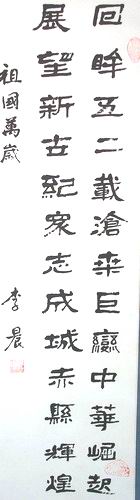 回眸五二載滄桒巨變中華崛起
展望新古紀衆志成城赤縣輝煌
祖國萬歲
李晨